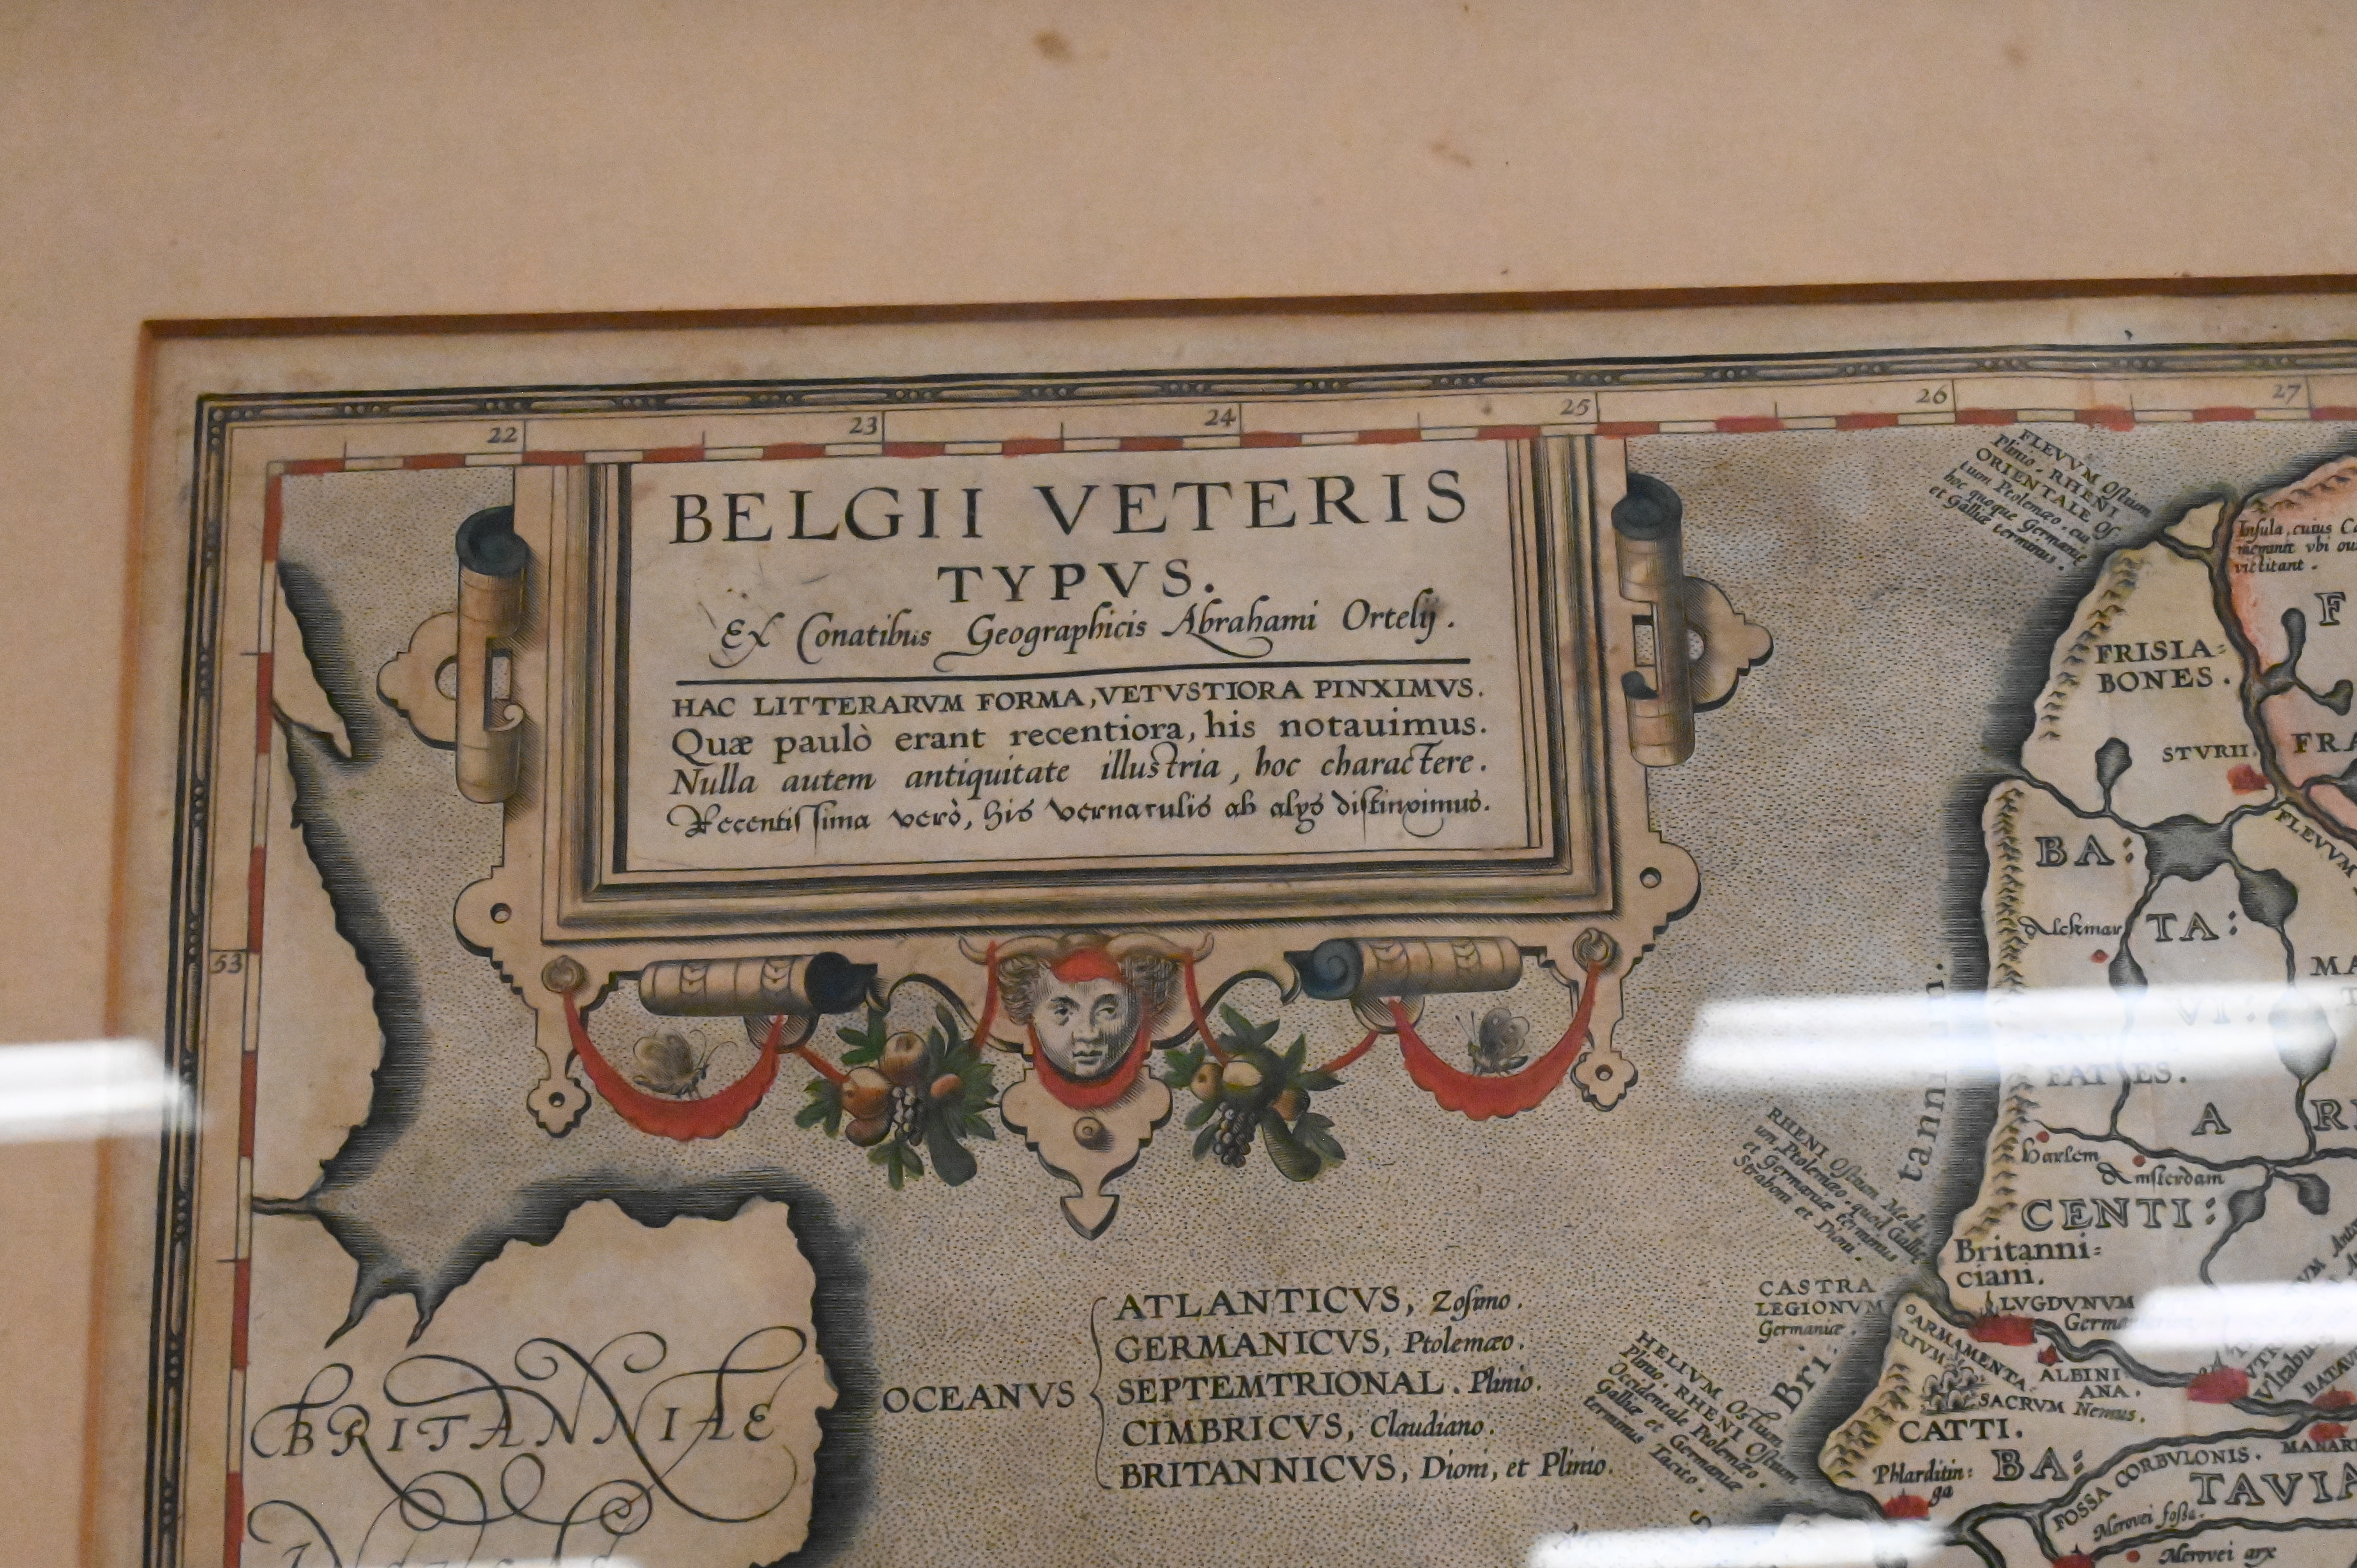 22 23 24 25 26 27
BELGII VETERIS
TYPVS.
Ex Conatibus Geographicis Abrahami Ortelij.
HAC LITTERARVM FORMA, VETVSTIORA PINXIMVS.
Quæ paulò erant recentiora, his notauimus.
Nulla autem antiquitate illustria, hoc charactere.
Recentissima verò, his vernaculis ab alys distinximus.
53
FLEVVM Ostium
Plinio. RHENI
ORIENTALE Os
tium Ptolemæo. cui
hoc quoque Germaniæ
et Galliæ terminus.
Insula, cuius
meminit vbi
victitant.
F
FRISIA=
BONES.
STVRII.
FRA
BA:
FLEVVM
Alckmar
TA:
MA
VI:
FAT ES.
A
RI
Harlem
Amsterdam
CENTI:
Britanni=
ciani.
RHENI Ostium Medi
um Ptolemæo. quod Galliæ
et Germaniæ terminus
Straboni et Dioni.
tanni
Bri
CASTRA
LEGIONVM
Germaniæ.
LVGDVNVM
ARMAMENTA
RIVM
ALBINI
ANA.
SACRVM Nemus.
CATTI.
BATAV
HELIVM Ostium
Plinio. RHENI Ostium
Occidentale Ptolemæo.
Galliæ et Germaniæ
terminus Tacito.
OCEANVS
ATLANTICVS, Zosimo.
GERMANICVS, Ptolemæo.
SEPTEMTRIONAL. Plinio.
CIMBRICVS, Claudiano.
BRITANNICVS, Dioni, et Plinio.
BRITANNIAE
Phlarditin=
ga
BA:
TAVIA
FOSSA CORBVLONIS.
MANARI
Merovei fossa.
Merovei arx